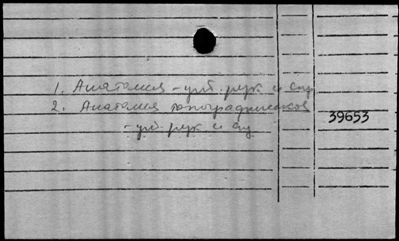 1. Анатомия - учб. рук. и сп.
2. Анатомия топографическая
- учб. рук. и сп.
39653